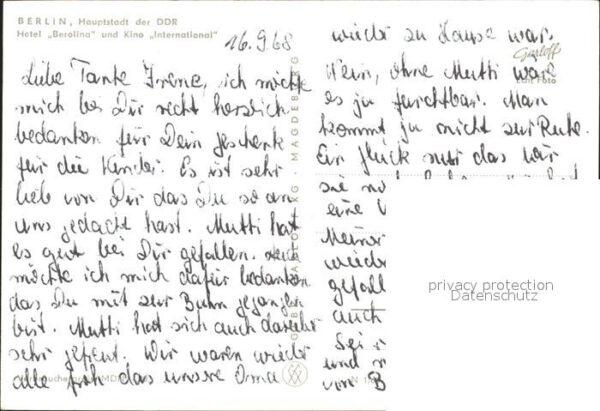 BERLIN, Hauptstadt der DDR
Hotel „Berolina“ und Kino „International“
16.9.68
Liebe Tante Irene, ich möchte
mich bei Dir recht herzlich
bedanken für Dein Geschenk
für die Kinder. Es ist sehr
lieb von Dir das Du so an
uns gedacht hast. Mutti hat
es gut bei Dir gefallen. Auch
möchte ich mich dafür bedanken
das Du mit zur Bahn gegangen
bist. Mutti hat sich auch darüber
sehr gefreut. Wir waren wieder
alle froh das unsere Oma
wieder zu Hause war.
Nein, ohne Mutti wäre
es ja furchtbar. Man
kommt ja nicht zur Ruhe.
Ein Glück nur das wir
sie
eine
Meiner
wieder
gefall
auch
Sei
und
von B
Garloff
Echt Foto
MAGDEBURG
privacy protection
Datenschutz